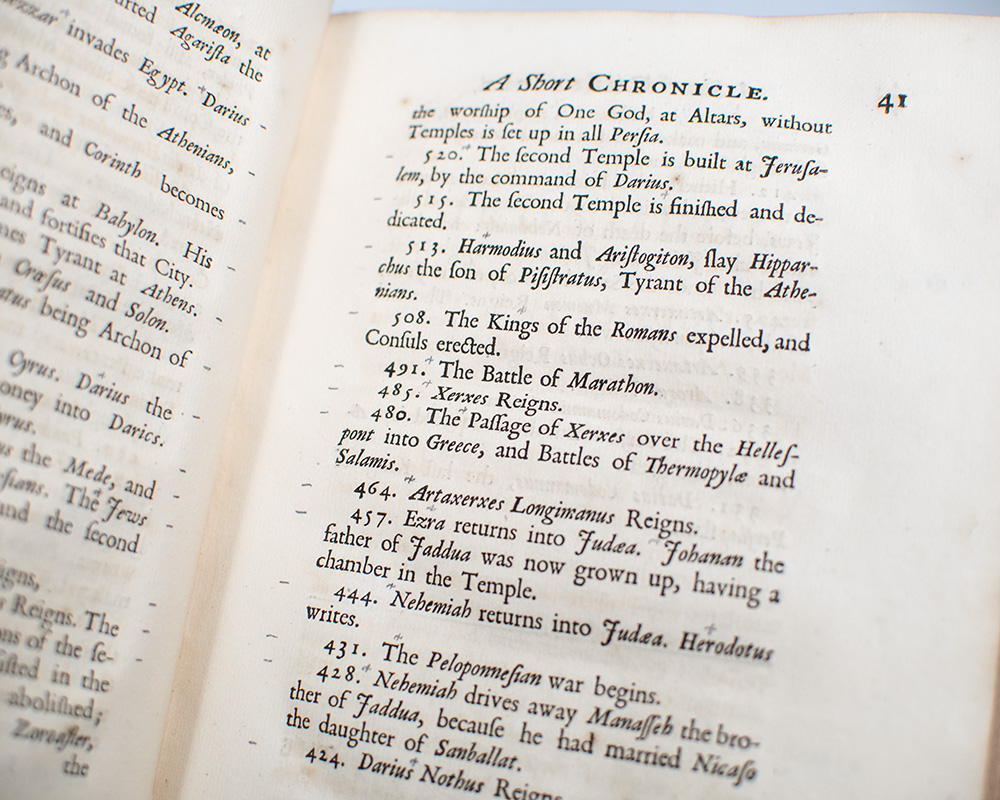 Alcmæon, at
Agarista the
invades Egypt. Darius
Archon of the Athenians,
and Corinth becomes
eigns at Babylon. His
and fortifies that City.
mes Tyrant at Athens.
Crœsus and Solon.
atus being Archon of
Cyrus. Darius the
oney into Darics.
yrus.
us the Mede, and
sians. The Jews
and the ſecond
igns,
s Reigns. The
ons of the ſe-
iſted in the
aboliſhed;
Zoroaſter,
the
A Short CHRONICLE. 41
the worſhip of One God, at Altars, without
Temples is ſet up in all Perſia.
520. The ſecond Temple is built at Jeruſa-
lem, by the command of Darius.
515. The ſecond Temple is finiſhed and de-
dicated.
513. Harmodius and Ariſtogiton, ſlay Hippar-
chus the ſon of Piſiſtratus, Tyrant of the Athe-
nians.
508. The Kings of the Romans expelled, and
Conſuls erected.
491. The Battle of Marathon.
485. Xerxes Reigns.
480. The Paſſage of Xerxes over the Helleſ-
pont into Greece, and Battles of Thermopylæ and
Salamis.
464. Artaxerxes Longimanus Reigns.
457. Ezra returns into Judæa. Johanan the
father of Jaddua was now grown up, having a
chamber in the Temple.
444. Nehemiah returns into Judæa. Herodotus
writes.
431. The Peloponneſian war begins.
428. Nehemiah drives away Manaſſeh the bro-
ther of Jaddua, becauſe he had married Nicaſo
the daughter of Sanballat.
424. Darius Nothus Reigns